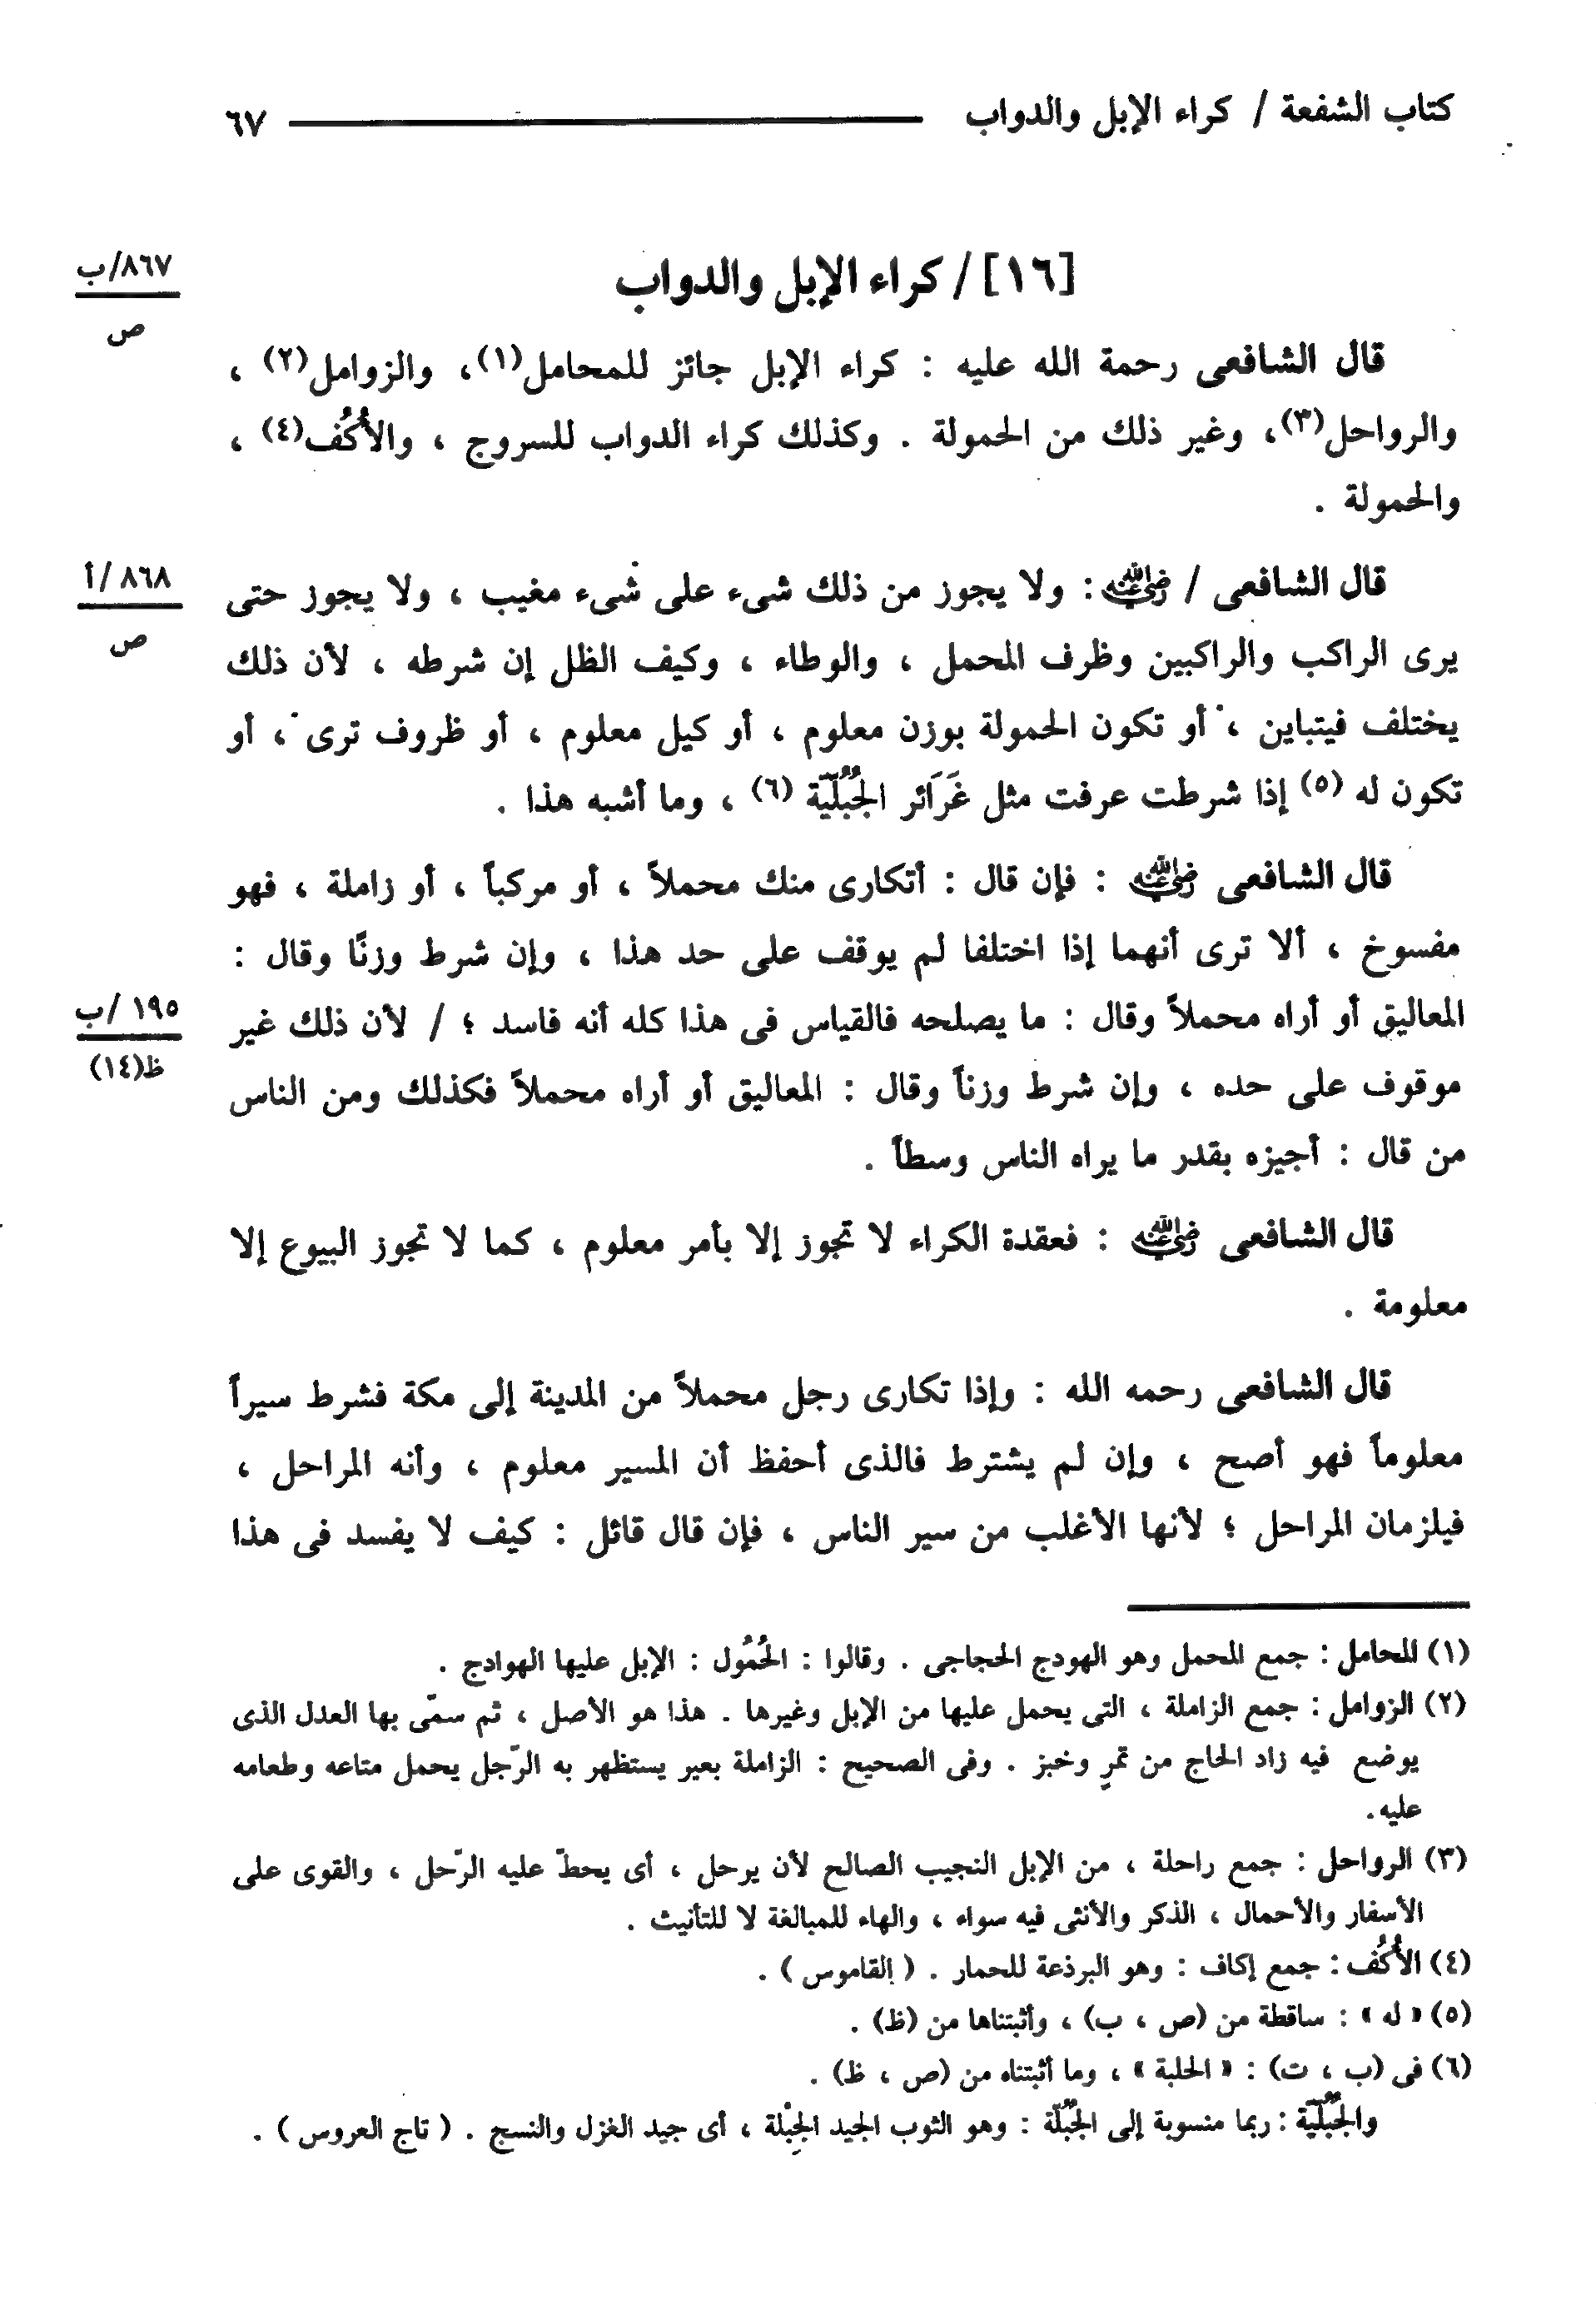 كتاب الشفعة / كراء الإبل والدواب ــــــ ٦٧
[١٦] / كراء الإبل والدواب
٨٦٧/ب
ص
قال الشافعى رحمة الله عليه : كراء الإبل جائز للمحامل(١)، والزوامل(٢) ،
والرواحل(٣)، وغير ذلك من الحمولة . وكذلك كراء الدواب للسروج ، والأُكُف(٤) ،
والحمولة .
قال الشافعى / رضي الله عنه : ولا يجوز من ذلك شىء على شىء مغيب ، ولا يجوز حتى
٨٦٨/أ
ص
يرى الراكب والراكبين وظرف المحمل ، والوطاء ، وكيف الظل إن شرطه ، لأن ذلك
يختلف فيتباين ، أو تكون الحمولة بوزن معلوم ، أو كيل معلوم ، أو ظروف ترى ، أو
تكون له (٥) إذا شرطت عرفت مثل غَرَائر الجُبُلِّيَّة (٦) ، وما أشبه هذا .
قال الشافعى رضي الله عنه : فإن قال : أتكارى منك محملاً ، أو مركباً ، أو زاملة ، فهو
مفسوخ ، ألا ترى أنهما إذا اختلفا لم يوقف على حد هذا ، وإن شرط وزنًا وقال :
المعاليق أو أراه محملاً وقال : ما يصلحه فالقياس فى هذا كله أنه فاسد ؛ / لأن ذلك غير
١٩٥/ب
ظ(١٤)
موقوف على حده ، وإن شرط وزناً وقال : المعاليق أو أراه محملاً فكذلك ومن الناس
من قال : أجيزه بقدر ما يراه الناس وسطاً .
قال الشافعى رضي الله عنه : فعقدة الكراء لا تجوز إلا بأمر معلوم ، كما لا تجوز البيوع إلا
معلومة .
قال الشافعى رحمه الله : وإذا تكارى رجل محملاً من المدينة إلى مكة فشرط سيراً
معلوماً فهو أصح ، وإن لم يشترط فالذى أحفظ أن المسير معلوم ، وأنه المراحل ،
فيلزمان المراحل ؛ لأنها الأغلب من سير الناس ، فإن قال قائل : كيف لا يفسد فى هذا
(١) المحامل : جمع المحمل وهو الهودج الحجاجى . وقالوا : الحُمُول : الإبل عليها الهوادج .
(٢) الزوامل : جمع الزاملة ، التى يحمل عليها من الإبل وغيرها . هذا هو الأصل ، ثم سمّى بها العدل الذى
يوضع فيه زاد الحاج من تمرٍ وخبز . وفى الصحيح : الزاملة بعير يستظهر به الرّجل يحمل متاعه وطعامه
عليه.
(٣) الرواحل : جمع راحلة ، من الإبل النجيب الصالح لأن يرحل ، أى يحطّ عليه الرّحل ، والقوى على
الأسفار والأحمال ، الذكر والأنثى فيه سواء ، والهاء للمبالغة لا للتأنيث .
(٤) الأُكُف : جمع إكاف : وهو البرذعة للحمار . ( القاموس ) .
(٥) « له » : ساقطة من (ص ، ب) ، وأثبتناها من (ظ) .
(٦) فى (ب ، ت) : « الحلبة » ، وما أثبتناه من (ص ، ظ) .
والجُبُلِّيَّة : ربما منسوبة إلى الجُبُلَّة : وهو الثوب الجيد الجِبْلة ، أى جيد الغزل والنسج . ( تاج العروس ) .